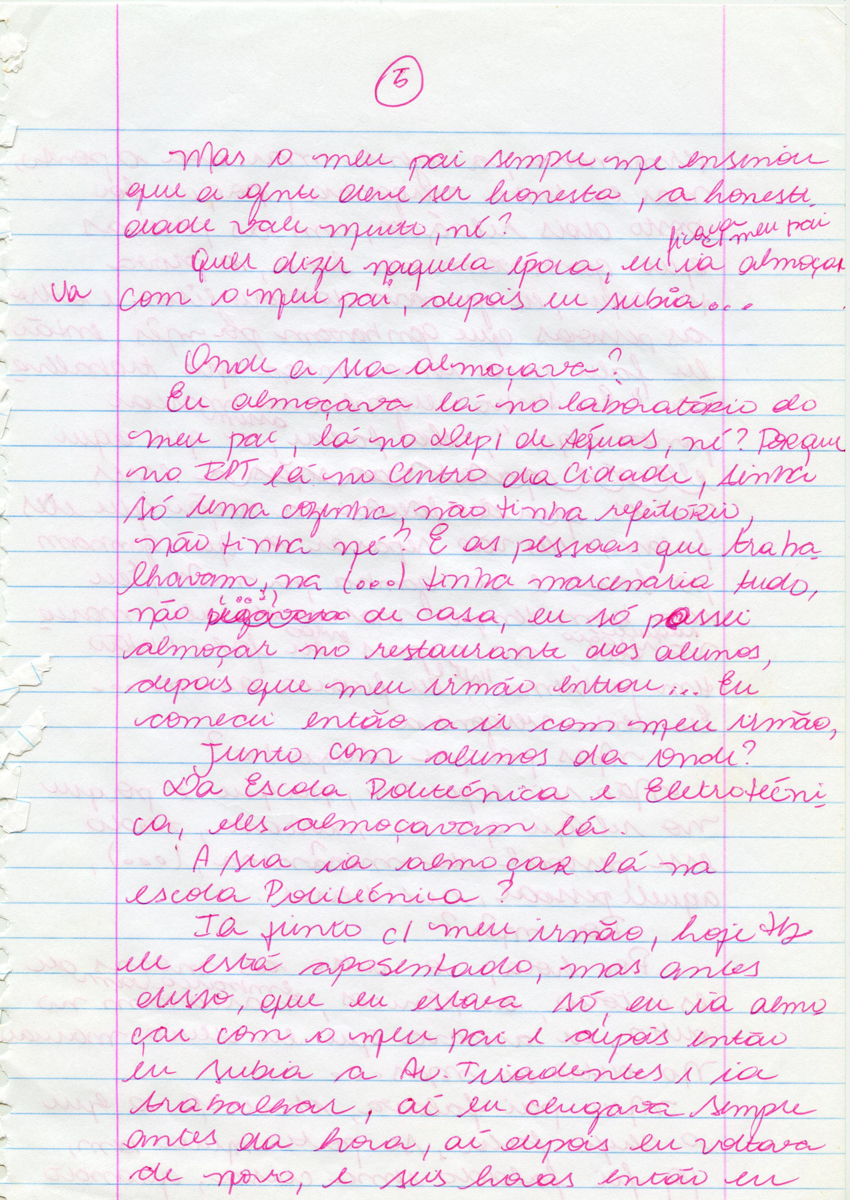 5
Mas o meu pai sempre me ensinou
que a gente deve ser honesta, a honesti
dade vale muito, né?
ficava meu pai
Quer dizer naquela época, eu ia almoçar
Va com o meu pai, depois eu subia...
Onde a sra almoçava?
Eu almoçava lá no laboratório do
meu pai, lá no Dep. de Águas, né? Porque
no IPT lá no Centro da Cidade, tinha
só uma cozinha, não tinha refeitório,
não tinha né? E as pessoas que traba-
lhavam, na (...) tinha marcenaria tudo,
(...)
não de casa, eu só passei
almoçar no restaurante dos alunos,
depois que meu irmão entrou... Eu
comecei então a ir com meu irmão,
Junto com alunos da onde?
Da Escola Politécnica e Eletrotécni-
ca, eles almoçavam lá.
A sra ia almoçar lá na
escola Politécnica?
Ia junto c/ meu irmão, hoje tb
ele está aposentado, mas antes
disso, que eu estava só, eu ia almo
çar com o meu pai e depois então
eu subia a Av. Tiradentes e ia
trabalhar, aí eu chegava sempre
antes da hora, aí depois eu voltava
de novo, e seis horas então eu